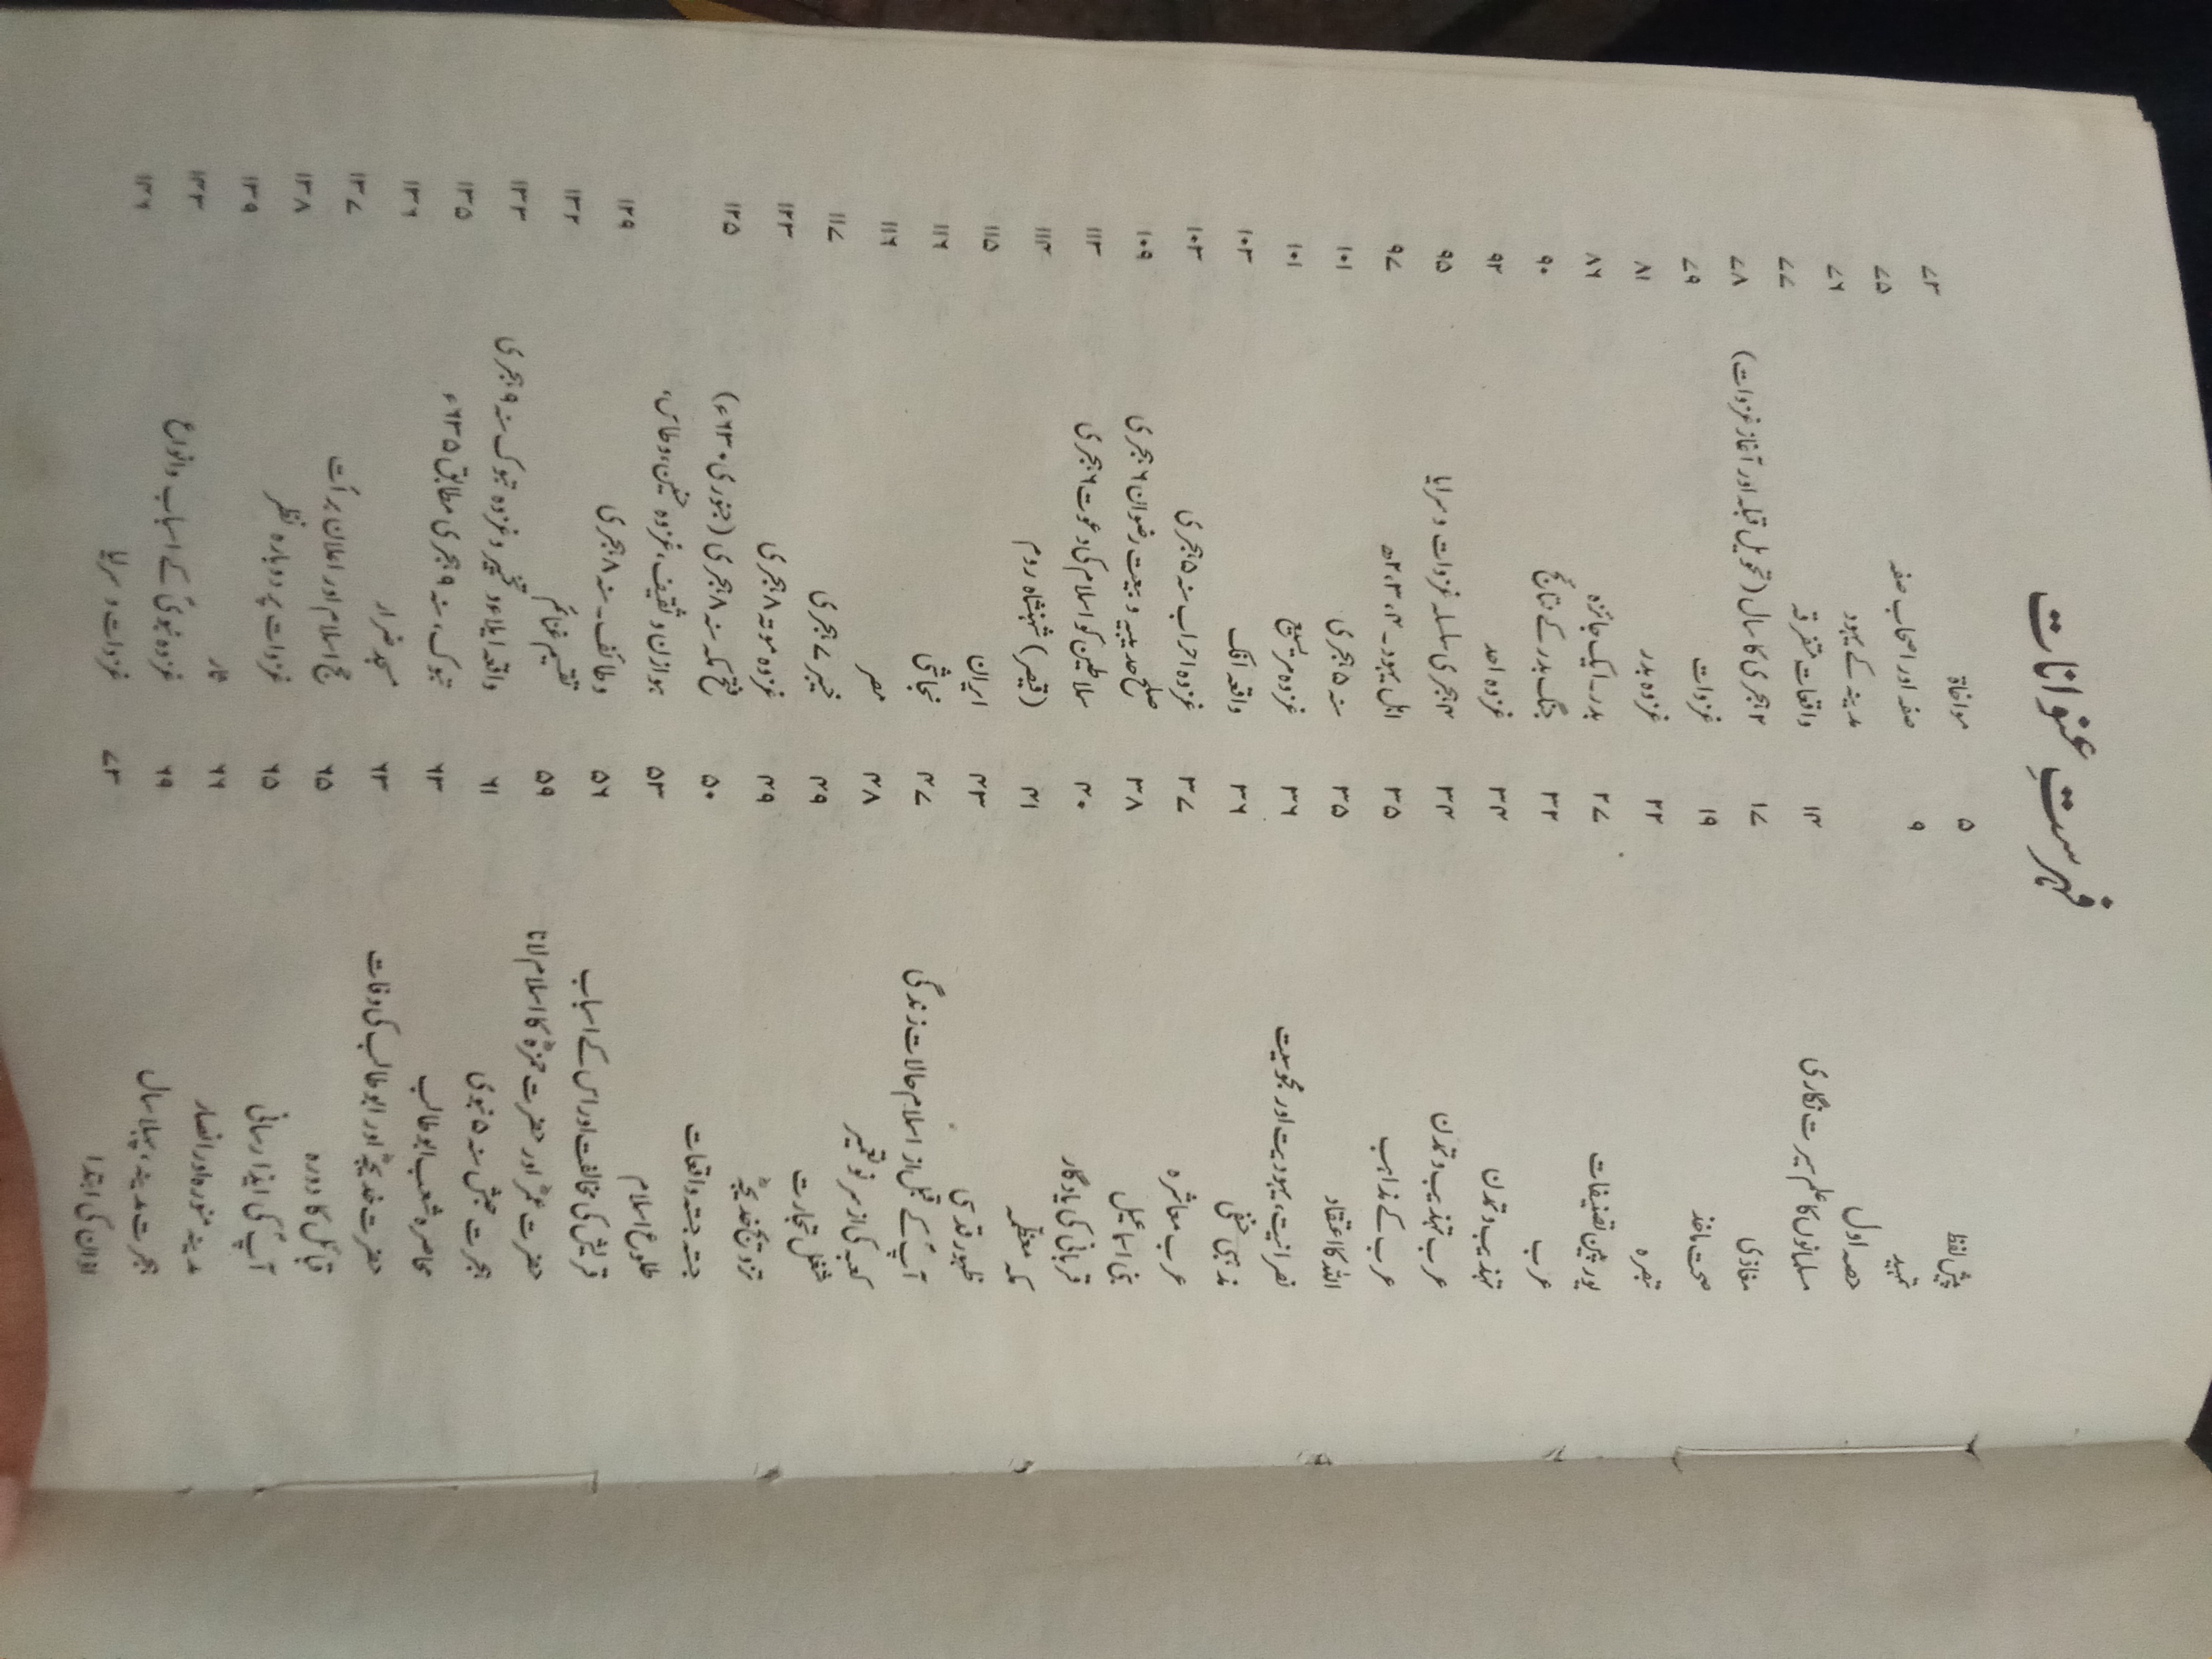 فہرستِ عنوانات
پیش لفظ ۵
تمہید ۹
حصہ اول
مسلمانوں کا علم سیرت نگاری ۱۴
مغازی ۱۷
صحت ماخذ ۱۹
تبصرہ ۲۲
یورپین تصنیفات ۲۷
عرب ۳۲
تہذیب و تمدن ۳۴
عرب تہذیب و تمدن ۳۴
عرب کے مذاہب ۳۵
اللہ کا اعتقاد ۳۵
نصرانیت، یہودیت اور مجوسیت ۳۶
مذہبی حنفی ۳۶
عرب معاشرہ ۳۷
بنی اسماعیل ۳۸
قربانی کی یادگار ۴۰
مکہ معظمہ ۴۱
ظہور قدسی ۴۳
آپؐ کے قبل از اسلام حالات زندگی ۴۷
کعبہ کی از سر نو تعمیر ۴۸
شغل تجارت ۴۹
تزویج خدیجہؓ ۴۹
جستہ جستہ واقعات ۵۰
طلوع اسلام ۵۳
قریش کی مخالفت اور اس کے اسباب ۵۶
حضرت عمرؓ اور حضرت حمزہؓ کا اسلام لانا ۵۹
ہجرت حبش سنہ ۵ نبوی ۶۱
محاصرہ شعب ابو طالب ۶۳
حضرت خدیجہؓ اور ابو طالب کی وفات ۶۳
قبائل کا دورہ ۶۵
آپؐ کی ایذا رسانی ۶۵
مدینہ منورہ اور انصار ۶۶
ہجرت مدینہ، پہلا سال ۶۹
اذان کی ابتدا ۷۳
مواخاۃ ۷۳
صفہ اور اصحاب صفہ ۷۵
مدینہ کے یہود ۷۶
واقعات متفرقہ ۷۷
۲ ہجری کا سال (تحویل قبلہ اور آغاز غزوات) ۷۸
غزوات ۷۹
غزوہ بدر ۸۱
بدر۔ ایک جائزہ ۸۶
جنگ بدر کے نتائج ۹۰
غزوہ احد ۹۲
۴ ہجری سلسلہ غزوات و سرایا ۹۵
اہل یہود۔ ۲،۳،۴ھ ۹۷
سنہ ۵ ہجری ۱۰۱
غزوہ مریسیع ۱۰۱
واقعہ افک ۱۰۳
غزوہ احزاب سنہ ۵ ہجری ۱۰۳
صلح حدیبیہ و بیعت رضوان ۶ ہجری ۱۰۹
سلاطین کو اسلام کی دعوت ۶ ہجری ۱۱۳
(قیصر) شہنشاہ روم ۱۱۴
ایران ۱۱۵
نجاشی ۱۱۶
مصر ۱۱۶
خیبر ۷ ہجری ۱۱۷
غزوہ موتہ ۸ ہجری ۱۲۳
فتح مکہ سنہ ۸ ہجری (جنوری ۶۳۰ء) ۱۲۵
ہوازن و ثقیف، غزوہ حنین، اوطاس،
و طائف۔ سنہ ۸ ہجری ۱۲۹
تقسیم غنائم ۱۳۲
واقعہ ایلاء و تخییر و غزوہ تبوک سنہ ۹ ہجری ۱۳۳
تبوک، سنہ ۹ ہجری مطابق ۶۳۵ء ۱۳۵
مسجد ضرار ۱۳۶
حج اسلام اور اعلان برأت ۱۳۷
غزوات پر دوبارہ نظر ۱۳۸
ثار ۱۳۹
غزوہ نبویؐ کے اسباب و انواع
غزوات و سرایا